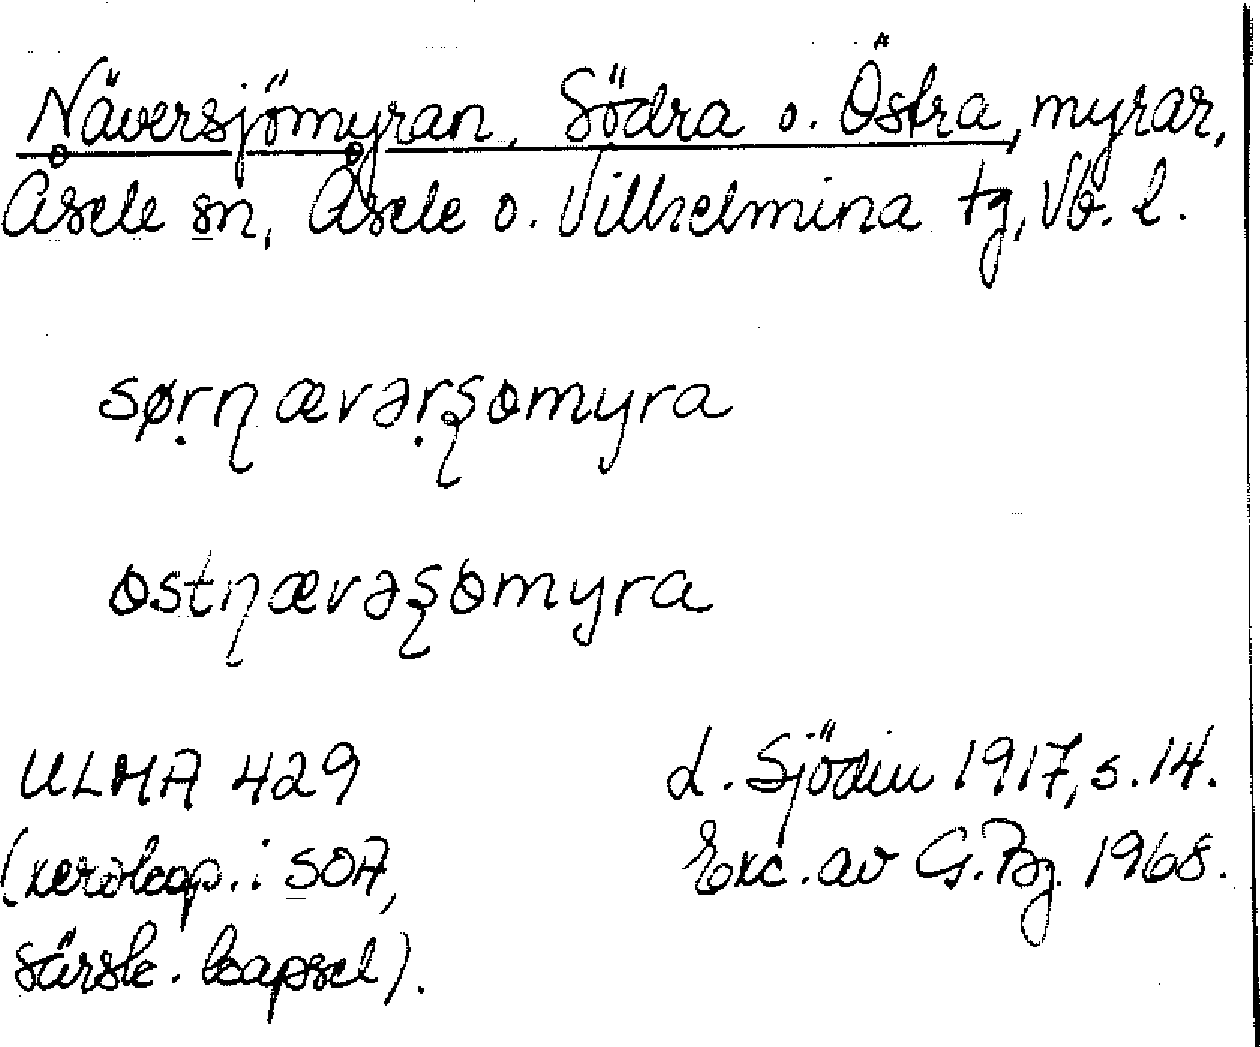 Näversjömyran, Södra o. Östra, myrar,
Åsele sn, Åsele o. Vilhelmina tg, Vb. l.
sørɳævərʂomyra
ostɳævəʂomyra
ULMA 429
L. Sjödin 1917, s. 14.
(xerokop. i SOA,
Exc. av G. Bg. 1968.
särsk. kapsel).